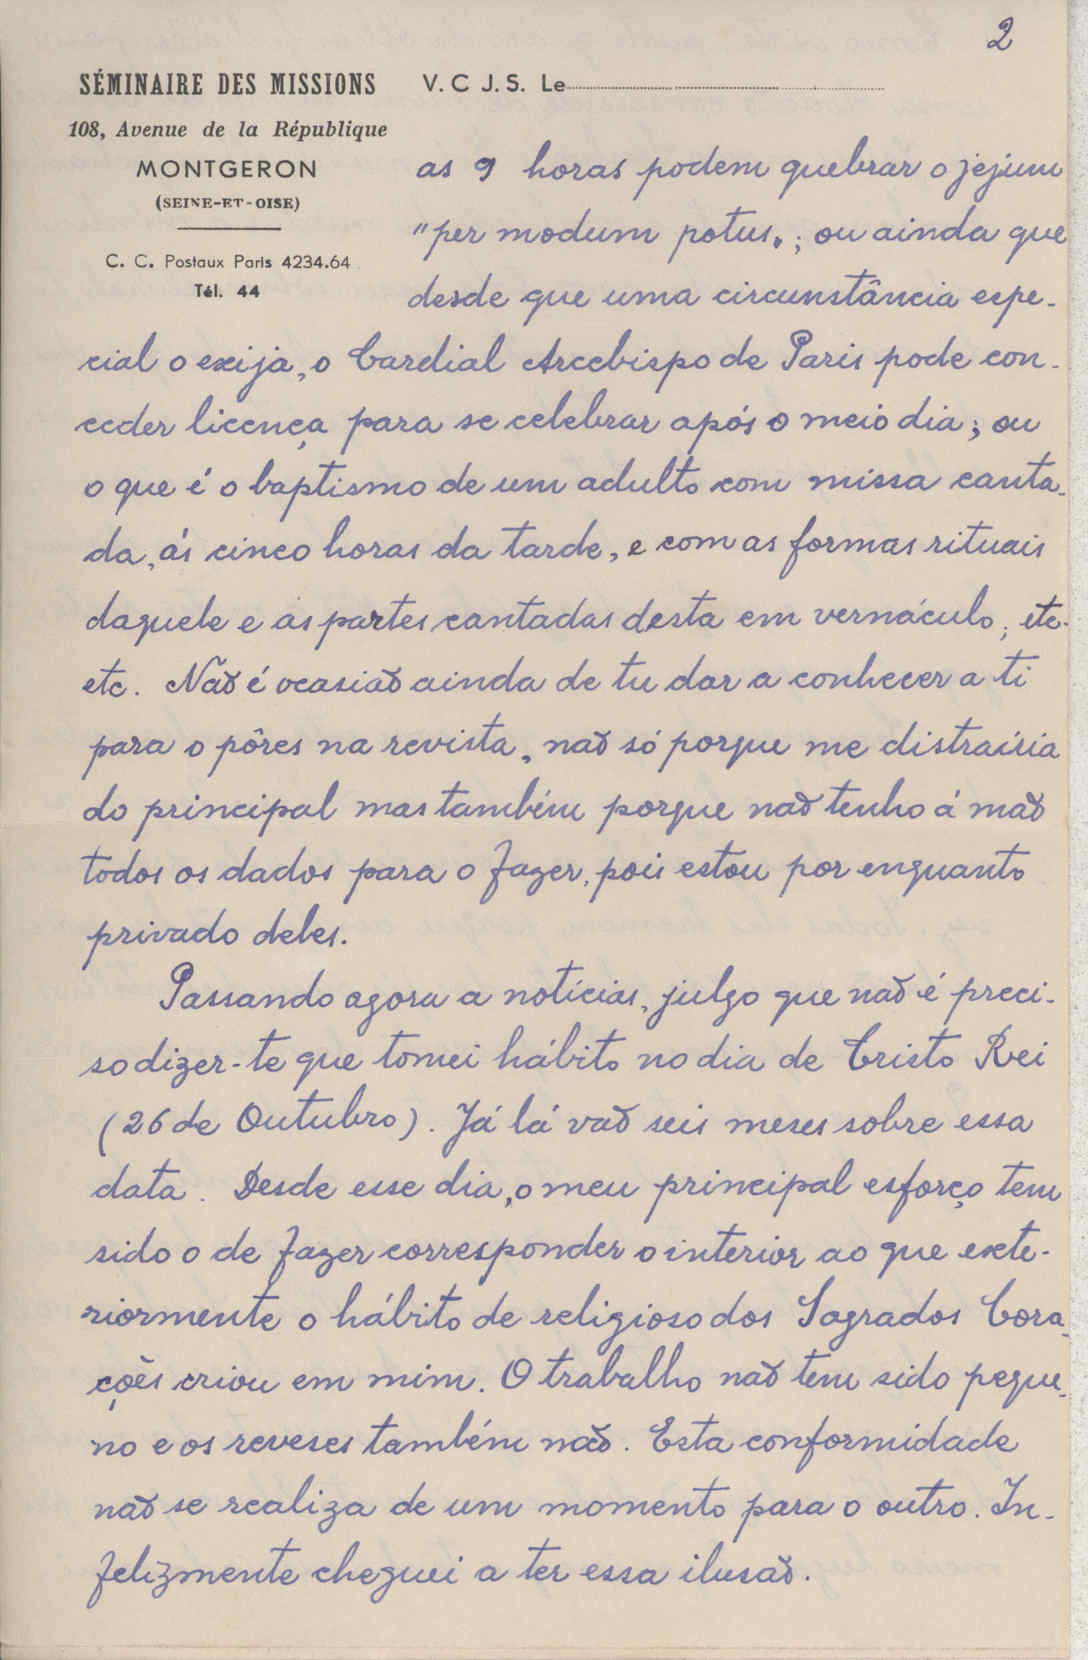 2
SÉMINAIRE DES MISSIONS
108, Avenue de la République
MONTGERON
(SEINE-ET-OISE)
C. C. Postaux Paris 4234.64
Tél. 44
V. C J. S. Le
as 9 horas podem quebrar o jejum
"per modum potus"; ou ainda que
desde que uma circunstância espe-
cial o exija, o Cardial Arcebispo de Paris pode con-
ceder licença para se celebrar após o meio dia; ou
o que é o baptismo de um adulto com missa canta-
da, ás cinco horas da tarde, e com as formas rituais
daquele e as partes cantadas desta em vernáculo; etc.
etc. Não é ocasião ainda de tu dar a conhecer a ti
para o pôres na revista, não só porque me distrairia
do principal mas também porque não tenho á mão
todos os dados para o fazer, pois estou por enquanto
privado deles.
Passando agora a notícias, julgo que não é preci-
so dizer-te que tomei hábito no dia de Cristo Rei
(26 de Outubro). Já lá vão seis meses sobre essa
data. Desde esse dia, o meu principal esforço tem
sido o de fazer corresponder o interior ao que exte-
riormente o hábito de religioso dos Sagrados Cora-
ções criou em mim. O trabalho não tem sido peque-
no e os reveses também não. Esta conformidade
não se realiza de um momento para o outro. In-
felizmente cheguei a ter essa ilusão.